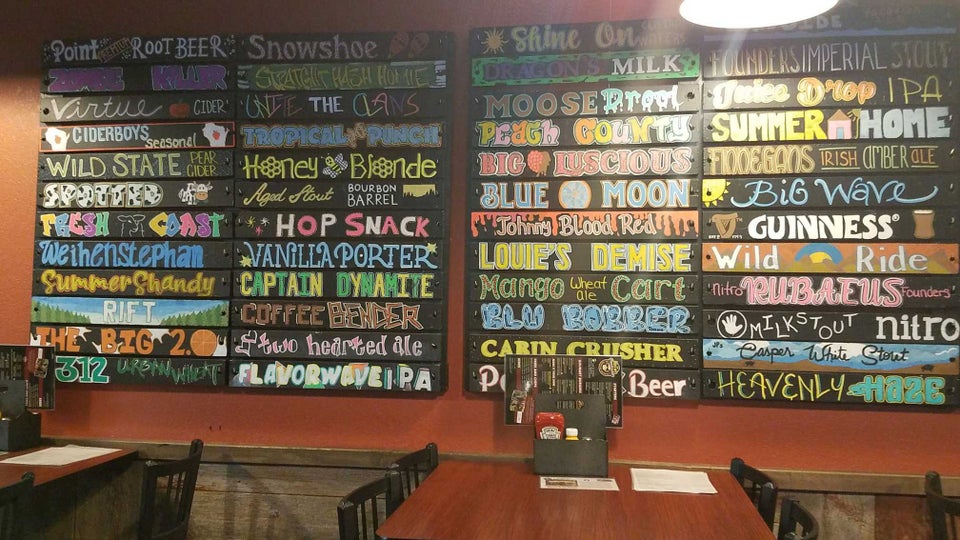 Point PREMIUM ROOT BEER
ZOMBIE KILLER
Virtue CIDER
CIDERBOYS seasonal
WILD STATE PEAR CIDER
SPOTTED
FRESH COAST
Weihenstephan
Summer Shandy
RIFT
THE BIG 2.0
312 URBAN WHEAT
Snowshoe
STRAIGHT HASH HOMIE
UNTIE THE CLANS
TROPICAL PUNCH
Honey Blonde
Aged Stout BOURBON BARREL
HOP SNACK
VANILLA PORTER
CAPTAIN DYNAMITE
COFFEE BENDER
two hearted ale
FLAVORWAVE IPA
Shine On
DRAGON'S MILK
MOOSE Drool
PEACH COUNTY
BIG LUSCIOUS
BLUE MOON
Johnny Blood Red
LOUIE'S DEMISE
Mango Wheat ale Cart
BLU BOBBER
CABIN CRUSHER
Beer
FOUNDERS IMPERIAL STOUT
Juice Drop IPA
SUMMER HOME
FINNEGANS IRISH AMBER ALE
Big Wave
GUINNESS
Wild Ride
Nitro RUBAEUS Founders
MILK STOUT nitro
Casper White Stout
HEAVENLY HAZE